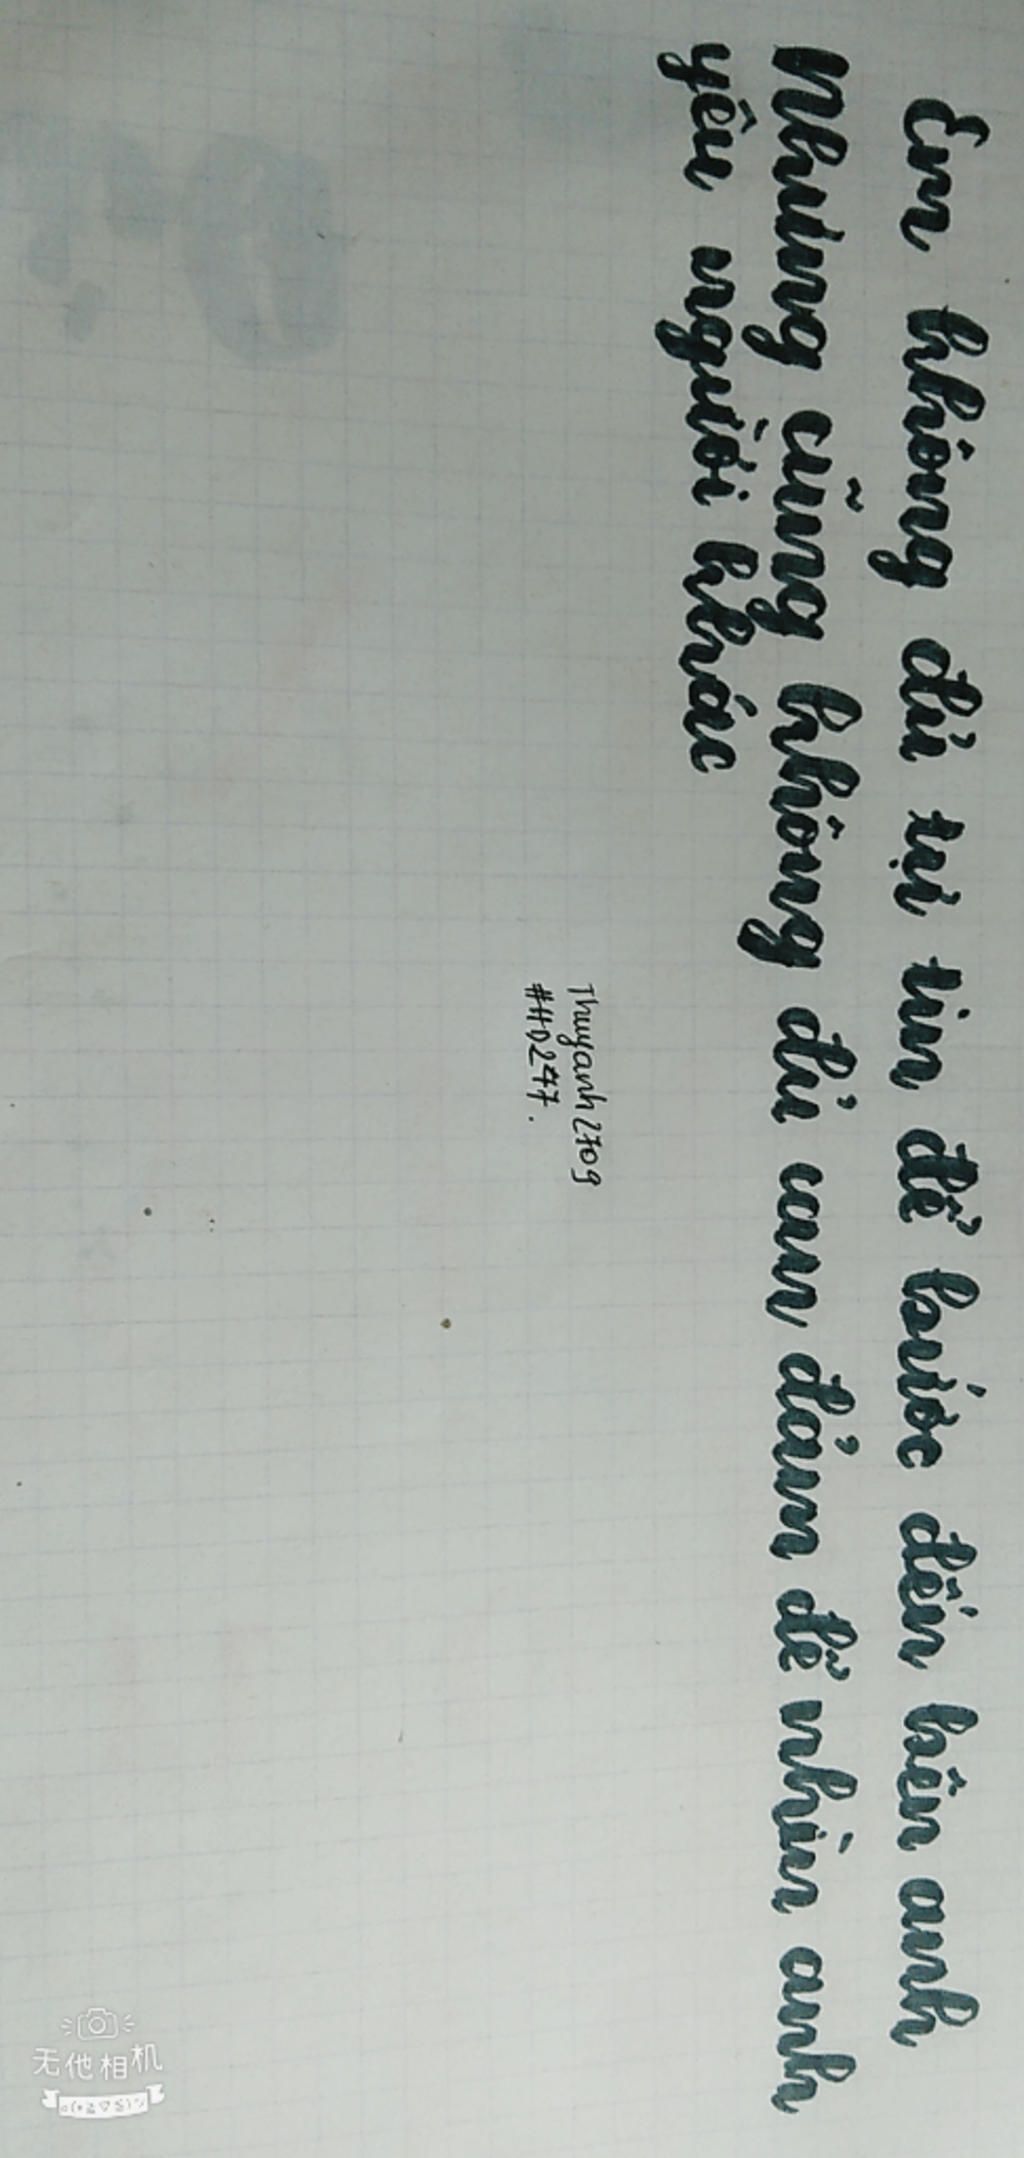 Em không đủ tự tin để bước đến bên anh
Nhưng cũng không đủ can đảm để nhìn anh
yêu người khác
Thuyanh2709
#HD247.
无他相机